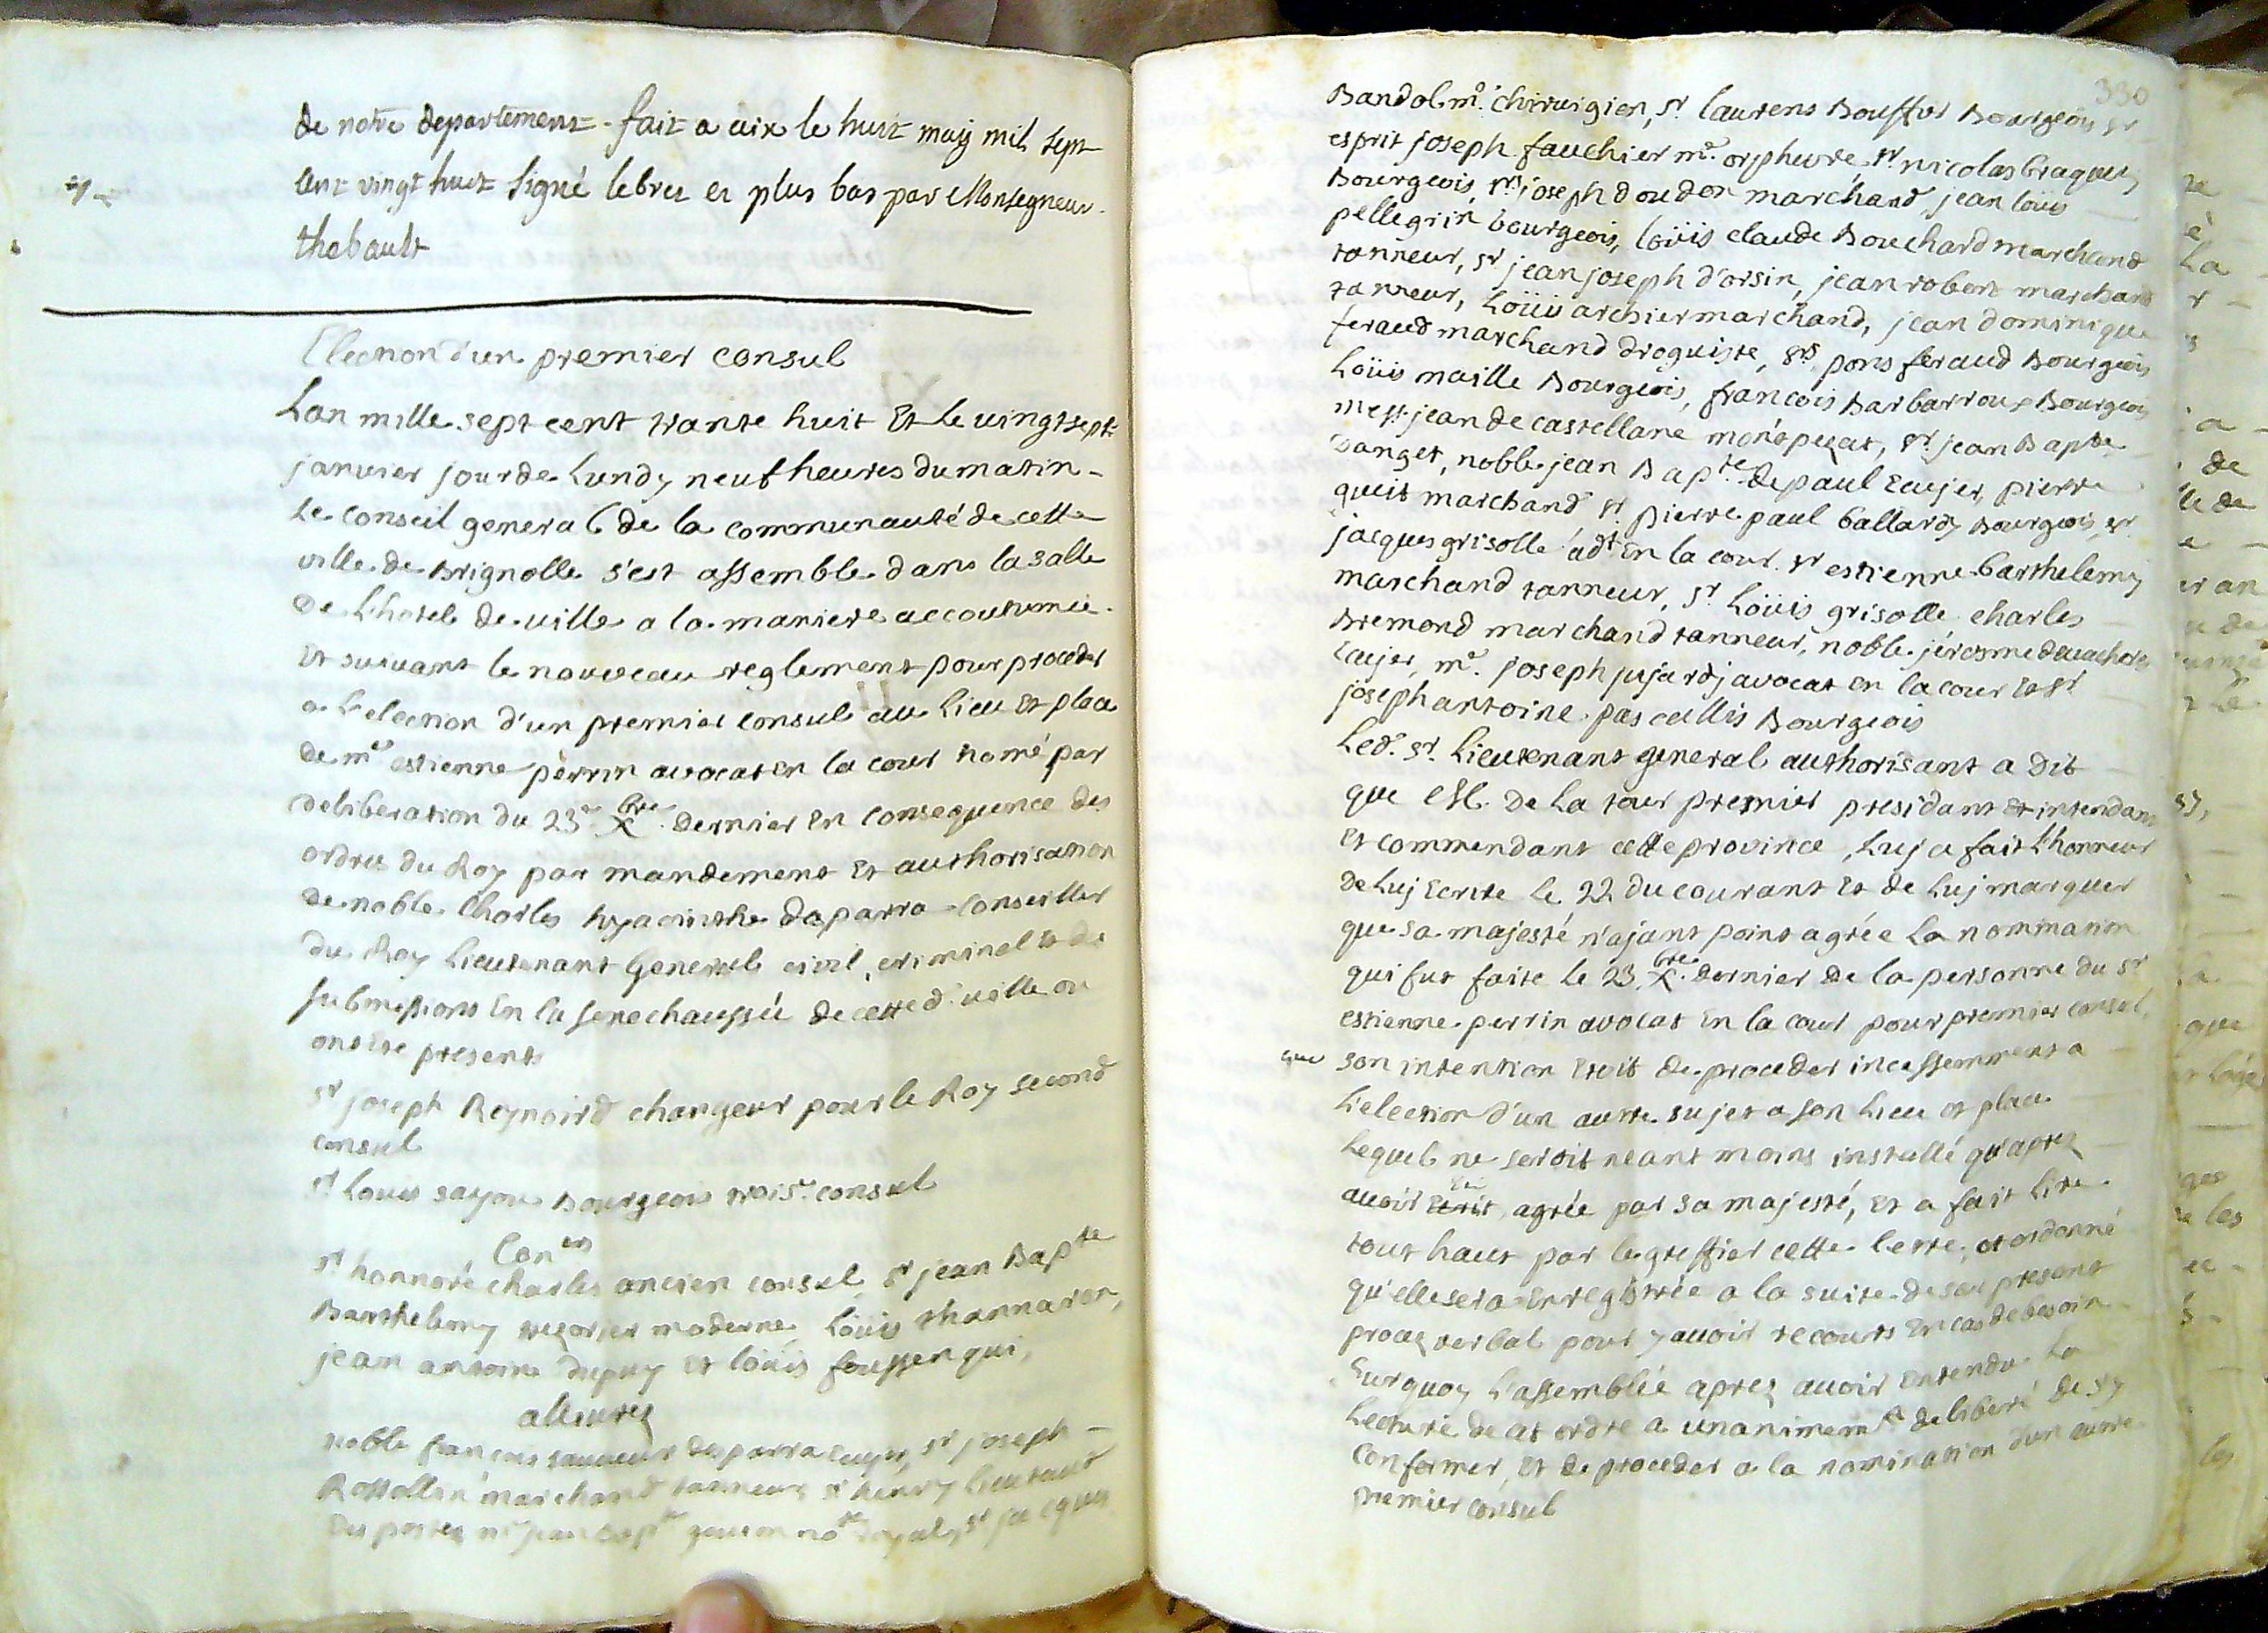 de notre departement - fait a aix le huit may mil sept
cent vingt huit signé lebret et plus bas par Monsegneur
thebault
Election d'un premier consul
Lan mille sept cent trante huit Et Le vingt sept
janvier jour de Lundy neuf heures du matin -
Le conseil general de la communauté de cette
ville de Brignolle s'est assemble dans la salle
de L'hotel de ville a la maniere accoutumée
Et suivant le nouveau reglement pour proceder
a L'election d'un premier consul au Lieu Et place
de me estienne perrin avocat En la cour nomé par
deliberation du 23e Xbre dernier En consequence des
ordres du Roy par mandement Et authorisation
de noble Charles hyacinthe daparra conseiller
du Roy Lieutenant General civil, criminel Et de
submissions En la senechaussée de cette d. ville ou
ont ete presents
sr joseph Reynoird changeur pour le Roy second
consul
sr Louis sayou Bourgeois troise. consul
Coners
sr honnoré charles ancien consul, sr jean Bapte
Barthelemy trezorier moderne, Loüis thannaron,
jean antoine dupuy Et loüis foussenqui,
alleurez
noble francois sauveur desparra Ecuyer, sr joseph -
Rossollin marchand tanneur sr henry lieutaud
des postes me jean Bapte no. royal, sr jacques
330
Bandol me. chirurgien, sr. laurens Bouffier Bourgeois sr
esprit joseph fauchier me. orpheuvre, sr. nicolas braquety
Bourgeois, srs joseph doudon marchand, jean loüis
pellegrin bourgeois, loüis claude Bouchard marchand
tanneur, sr jean joseph d'orsin, jean robert marchand
tanneur, Loüis archier marchand, jean dominique
feraud marchand droguiste, srs. pons feraud Bourgeois
Loüis maille Bourgeois, francois Barbarroux Bourgeois
mess. jean de castellane monspezat, sr. jean Bapte
danget, noble jean Bapte. de paul Ecujer, pierre
queit marchand sr. pierre paul ballardy Bourgeois, sr.
jacques grisolle adt En la cour sr estienne barthelemy
marchand tanneur, sr. Loüis grisolle charles
Bremond marchand tanneur, noble jerosme
Ecujer, me. joseph avocat En la cour Et sr
joseph antoine pascallis Bourgeois
Led. sr. Lieutenant general authorisant a dit
que M. De La tour premier presidant Et intendant
Et commendant cette province, Luj a fait L'honneur
de Luj Ecrire Le 22 du courant Et de Luj marquer
que sa majesté n'ajant point agrée La nomination
qui fut faite le 23 Xbre. dernier de la personne du sr
estienne perrin avocat En la cour pour premier consul,
que son intention Etoit de proceder incessemment a
L'election d'un autre sujet a son Lieu et place
Lequel ne seroit neant moins installé qu'aprez
avoir agrée par sa majesté, Et a fait lire
tout haut par le greffier cette lettre, et ordonné
qu'elle sera Enregistrée a la suite de son present
procez verbal pour y avoir recourts En cas de besoin
Surquoy L'assemblée aprez avoir Entendu La
Lecture de cet ordre a unanimemt deliberé de s'y
Conformer, Et de proceder a la nomination d'un autre
premier consul